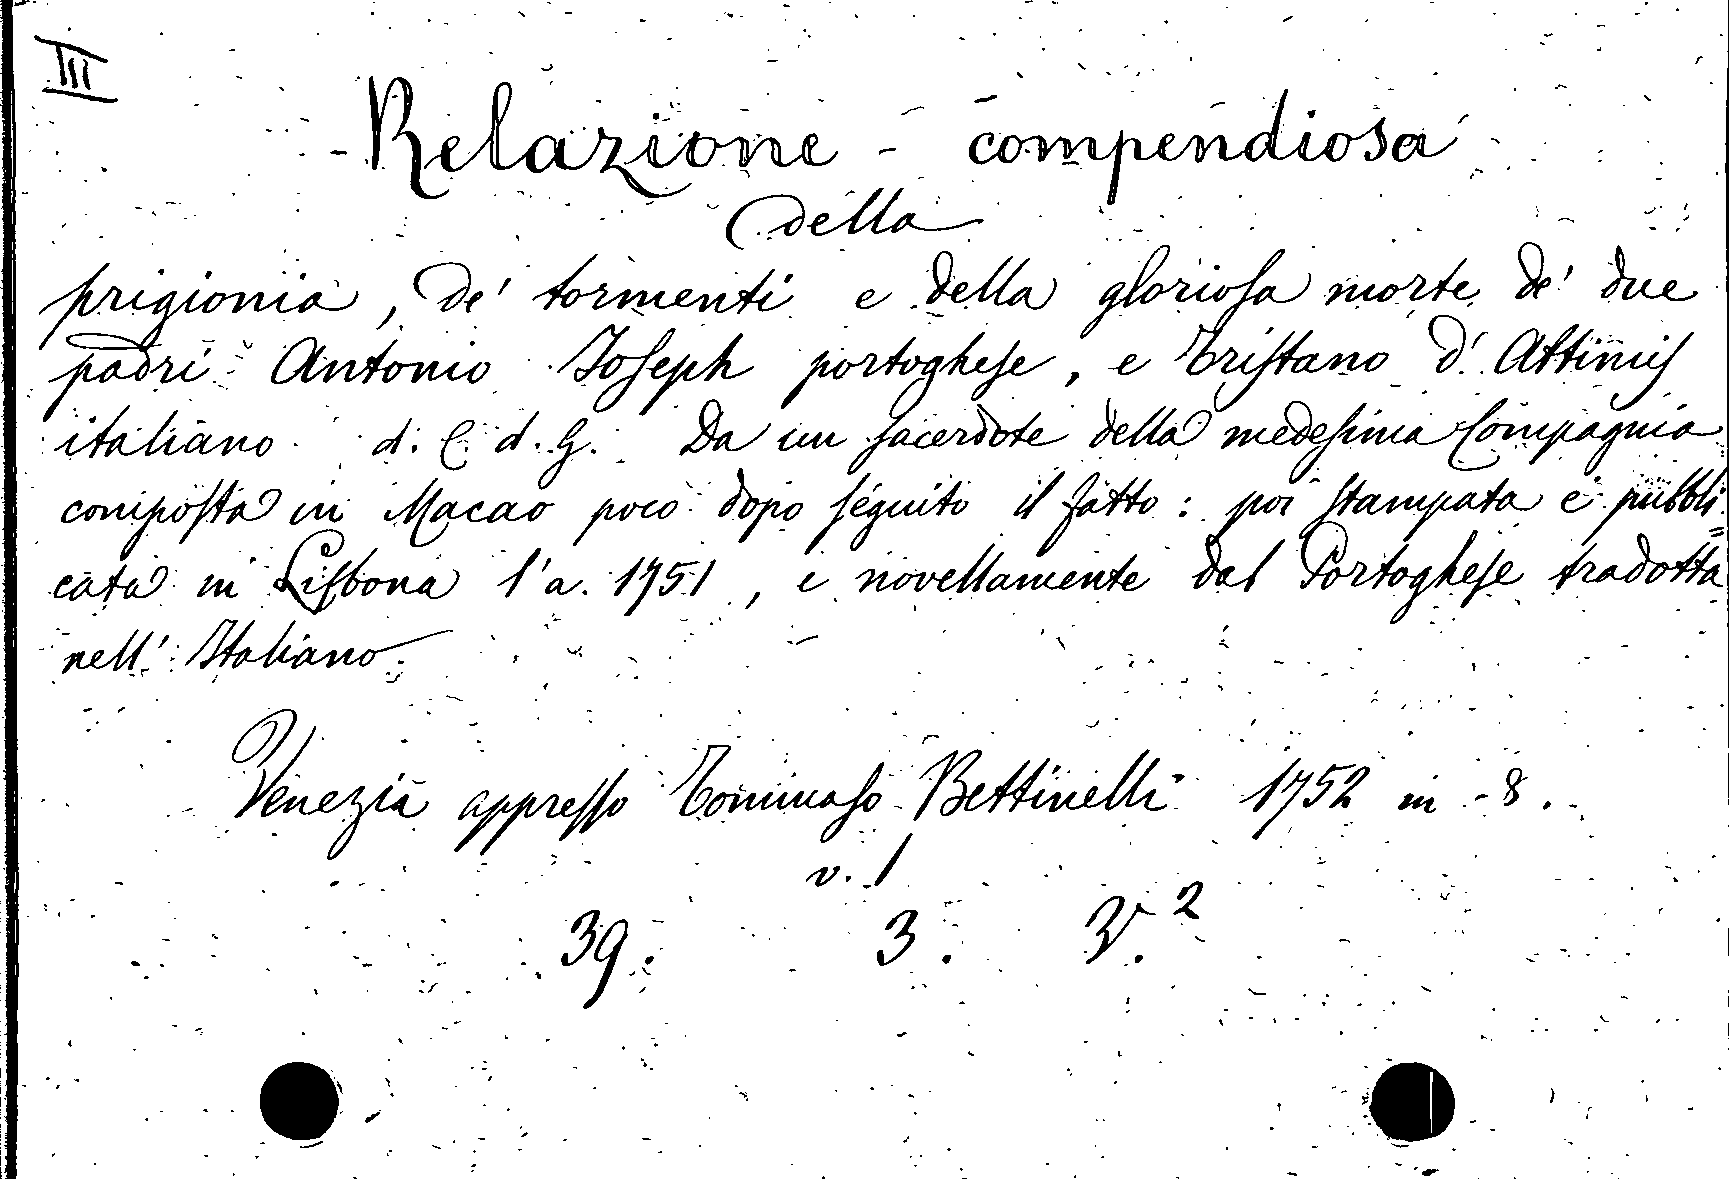 III
Relazione compendiosa
della
prigionia, de' tormenti e della gloriosa morte de' due
padri Antonio Joseph portoghese, e Tristano d'Attimis
italiano d. C. d. G. Da un sacerdote della medesima Compagnia
composta in Macao poco dopo seguito il fatto: poi stampata e pubbli=
cata in Lisbona l'a. 1751, e novellamente dal Portoghese tradotta
nell' Italiano.
Venezia appresso Tommaso Bettinelli 1752 in-8.
v. 1
39. 3. V.²